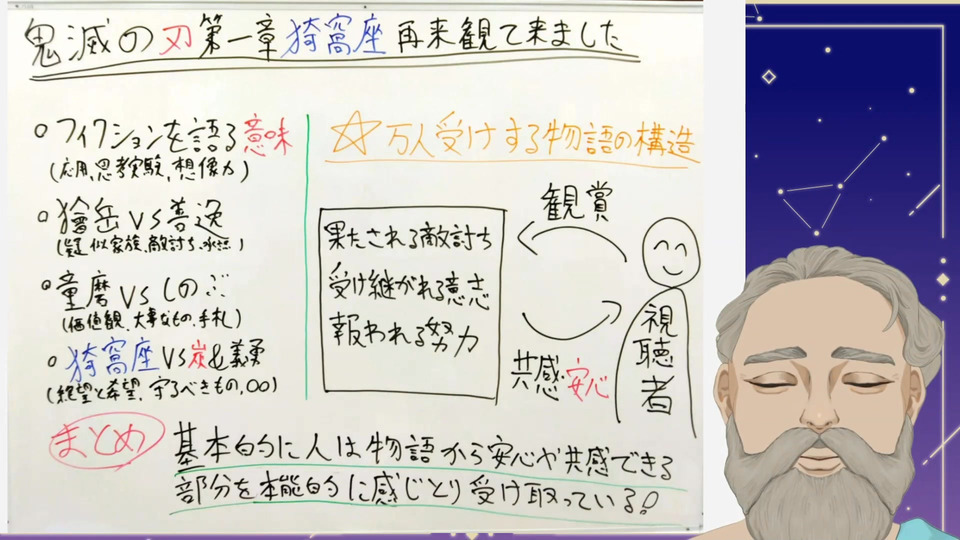 鬼滅の刃 第一章 猗窩座再来 観て来ました
○フィクションを語る意味
(応用、思考実験、想像力)
○獪岳 VS 善逸
(疑似家族、敵討ち、水点)
○童磨 VS しのぶ
(価値観、大事なもの、手札)
○猗窩座 VS 炭&義勇
(絶望と希望、守るべきもの、○○)
☆万人受けする物語の構造
観賞
果たされる敵討ち
受け継がれる意志
報われる努力
共感・安心
視聴者
まとめ
基本的に人は物語から安心や共感できる
部分を本能的に感じとり受け取っている!